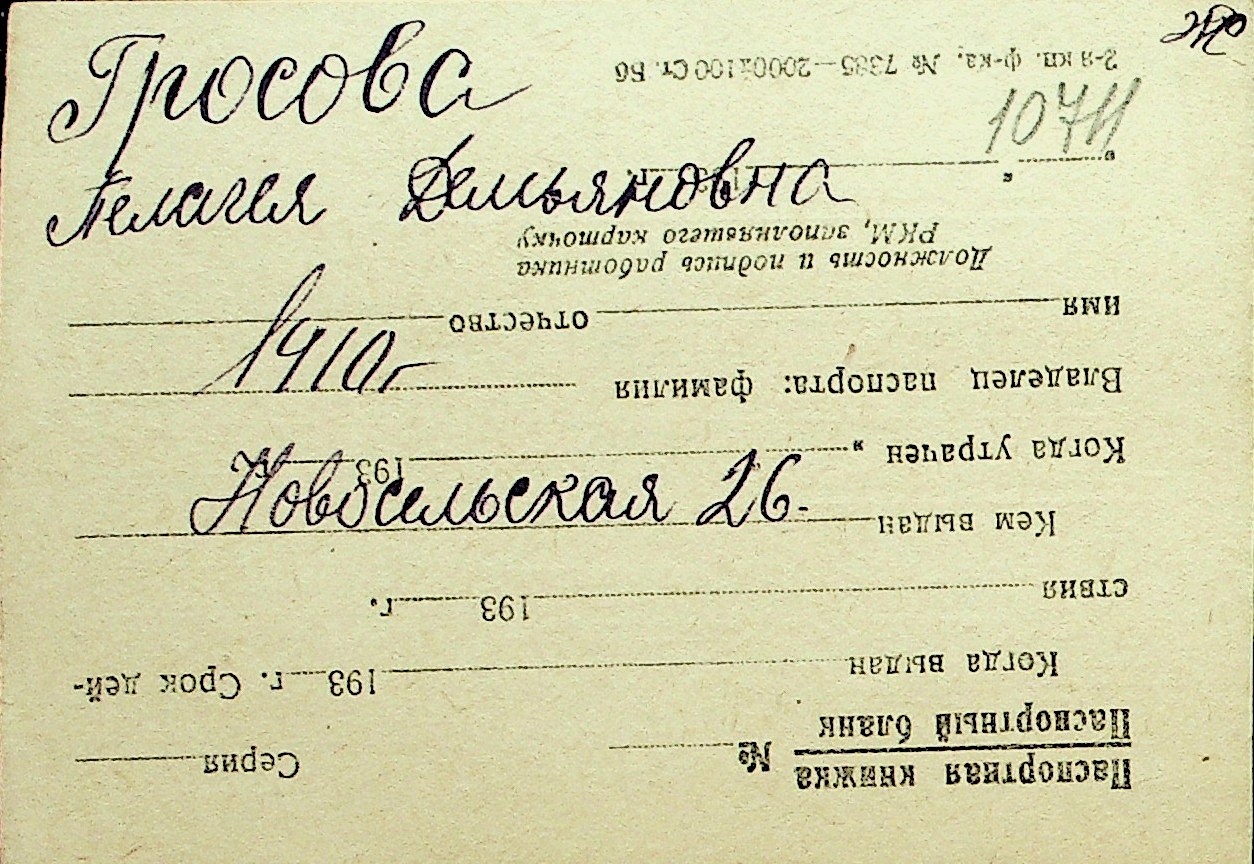 Гросова
Пелагея Демьяновна
1910 г
Новосельская 26.
1071
Паспортная книжка
Паспортный бланк № Серия
Когда выдан 193 г. Срок дей-
ствия 193 г.
Кем выдан
Когда утрачен „ 193 г.
Владелец паспорта: фамилия
имя отчество
Должность и подпись работника
РКМ, заполнявшего карточку
„ " 193 г.
2-я кп. ф-ка, № 7385—2000х100 Ст. Б6